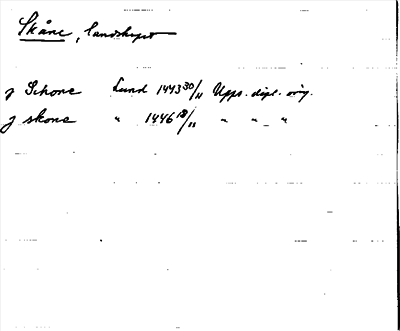 Skåne, landskapet
j Schone Lund 1443 30/11 Upps. dipl. orig.
j skone " 1446 18/11 " " _ "